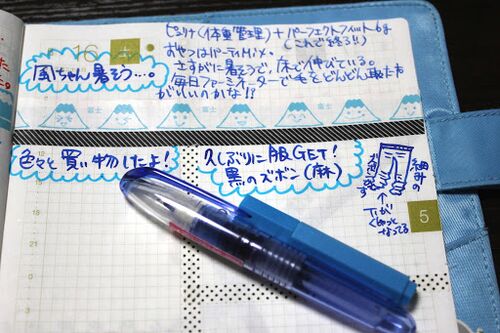 16 土
ピュリナ(体重管理)+パーフェクトフィット6g
(これで終了!!)
おやつはパーティMix。
さすがに暑そうで、床で伸びている。
毎日ファーミネーターで毛をどんどん取った方
がいいのかな!?
風ちゃん暑そう…。
富士
富士
色々と買い物したよ!
久しぶりに服GET!
黒のズボン(麻)
細身の
下が
きゅっと
なってる
5
18
21
0
3